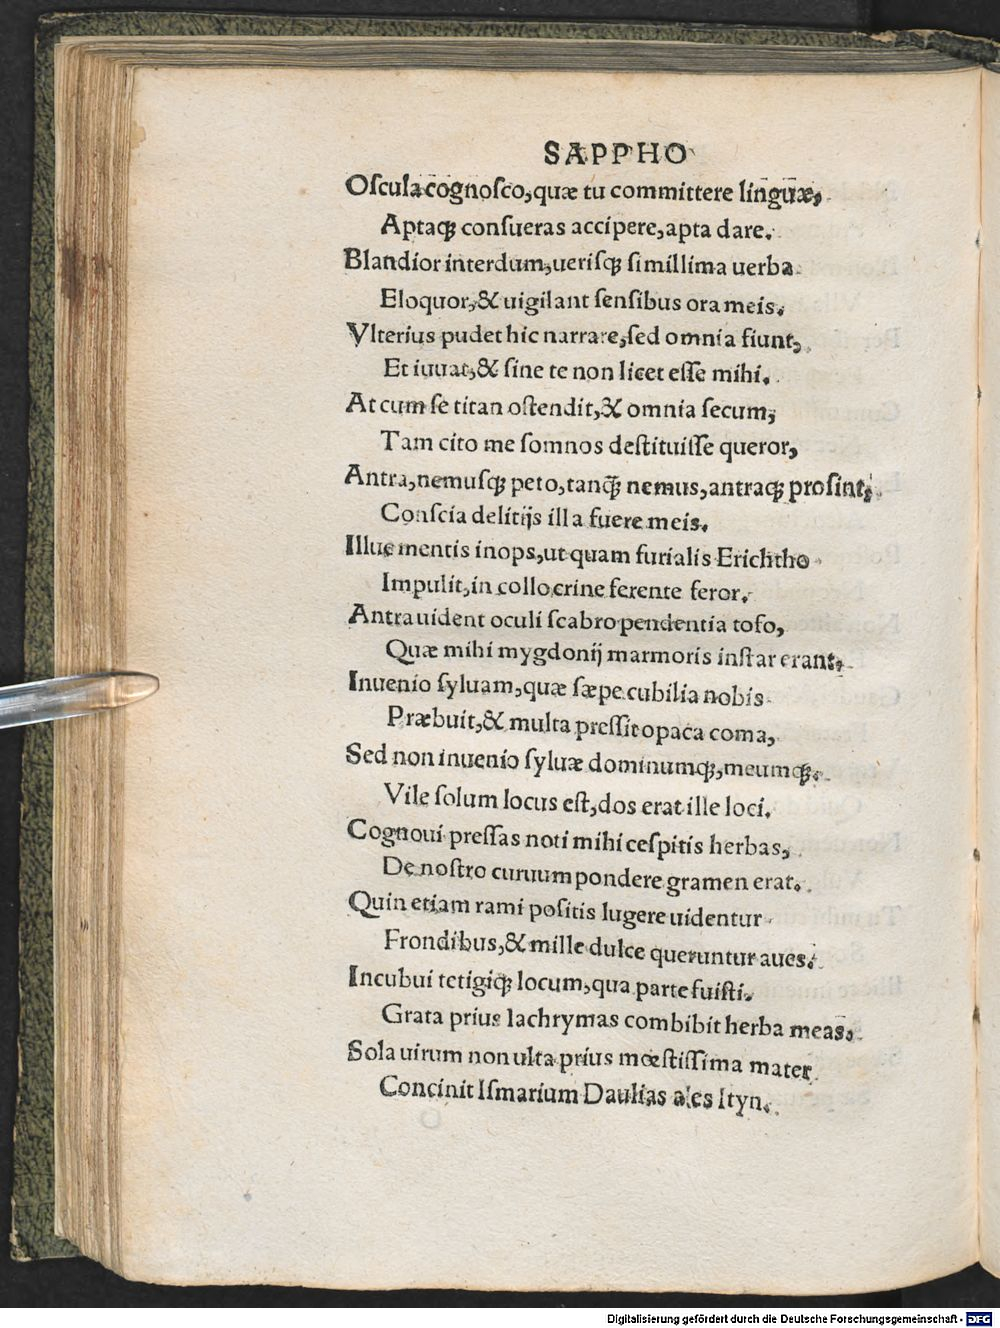 SAPPHO
Oſcula cognoſco,quæ tu committere linguæ,
Aptaq; conſueras accipere,apta dare.
Blandior interdum,ueriſq; ſimillima uerba
Eloquor,& uigilant ſenſibus ora meis.
Vlterius pudet hic narrare,ſed omnia fiunt,
Et iuuat,& ſine te non licet eſſe mihi.
At cum ſe titan oſtendit,& omnia ſecum,
Tam cito me ſomnos deſtituiſſe queror,
Antra,nemuſq; peto,tanq̃ nemus,antraq; proſint,
Conſcia delitijs illa fuere meis.
Illuc mentis inops,ut quam furialis Erichtho
Impulit,in collo crine ferente feror.
Antra uident oculi ſcabro pendentia tofo,
Quæ mihi mygdonij marmoris inſtar erant,
Inuenio ſyluam,quæ ſæpe cubilia nobis
Præbuit,& multa preſſit opaca coma,
Sed non inuenio ſyluæ dominumq;,meumq;.
Vile ſolum locus eſt,dos erat ille loci.
Cognoui preſſas noti mihi ceſpitis herbas,
De noſtro curuum pondere gramen erat.
Quin etiam rami poſitis lugere uidentur
Frondibus,& mille dulce queruntur aues.
Incubui tetigiq; locum,qua parte fuiſti.
Grata prius lachrymas combibit herba meas.
Sola uirum non ulta prius mœſtiſſima mater
Concinit Iſmarium Daulias ales Ityn.
Digitalisierung gefördert durch die Deutsche Forschungsgemeinschaft - DFG